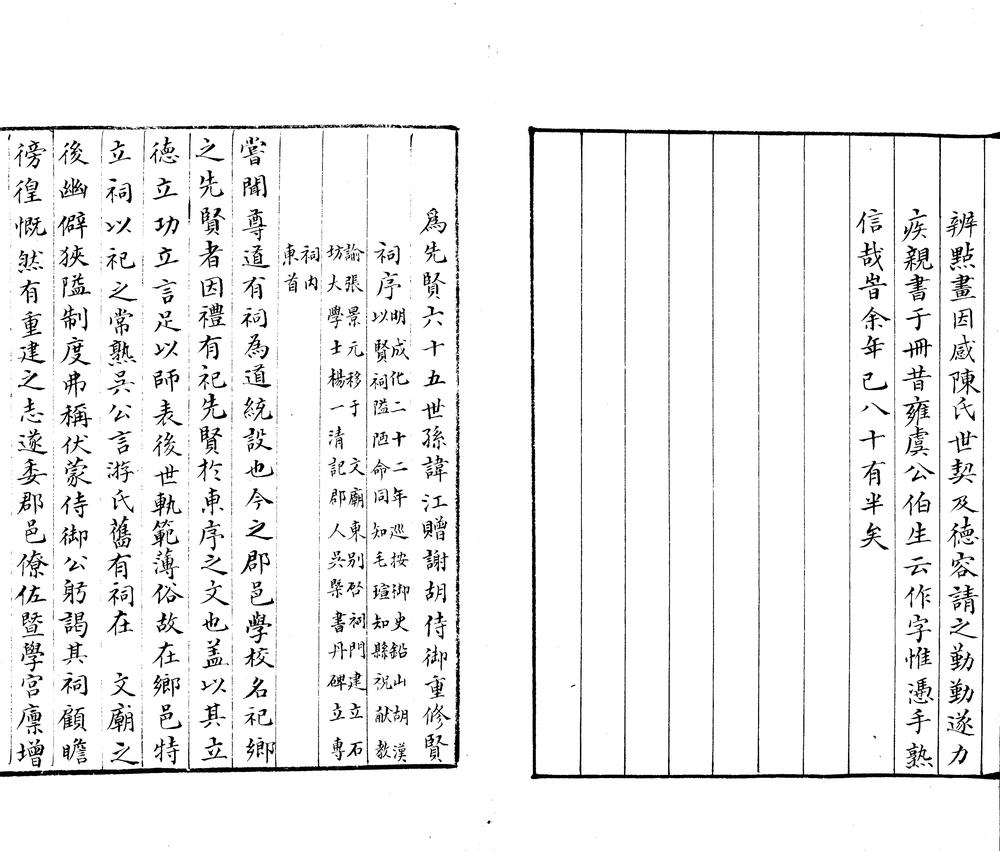 辨點畫因感陳氏世契及德容請之勤勤遂力
疾親書于冊昔雍虞公伯生云作字惟憑手熟
信哉旹余年已八十有半矣
爲先賢六十五世孫諱江贈謝胡侍御重修賢
祠序
明成化二十二年巡按御史鉛山胡漢
以賢祠隘陋命同知毛瑄知縣祝獻教
諭張景元移于 文廟東別啓祠門建立石
坊大學士楊一清記郡人吳檠書丹碑立專
祠内
東首
嘗聞尊道有祠為道統設也今之郡邑學校名祀鄉
之先賢者因禮有祀先賢於東序之文也盖以其立
德立功立言足以師表後世軌範薄俗故在鄉邑特
立祠以祀之常熟吳公言游氏舊有祠在 文廟之
後幽僻狹隘制度弗稱伏蒙侍御公躬謁其祠顧瞻
徬徨慨然有重建之志遂委郡邑僚佐暨學宮廩增